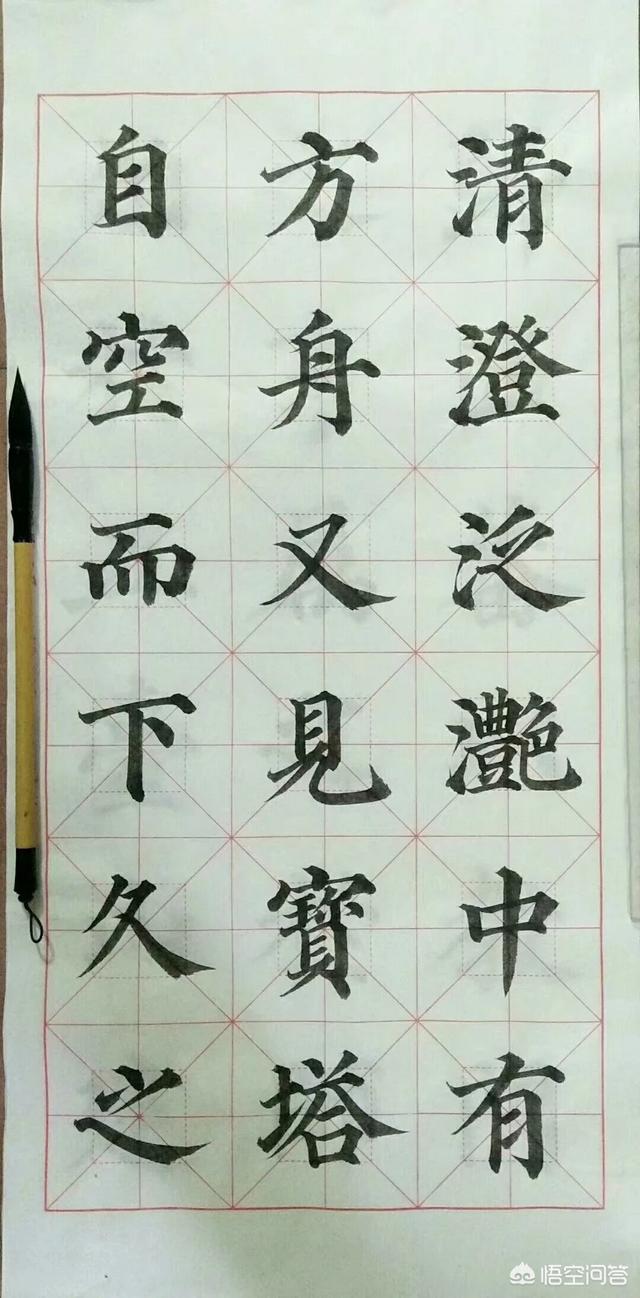 清澄泛灧中有
方身又見寶塔
自空而下久之
悟空问答